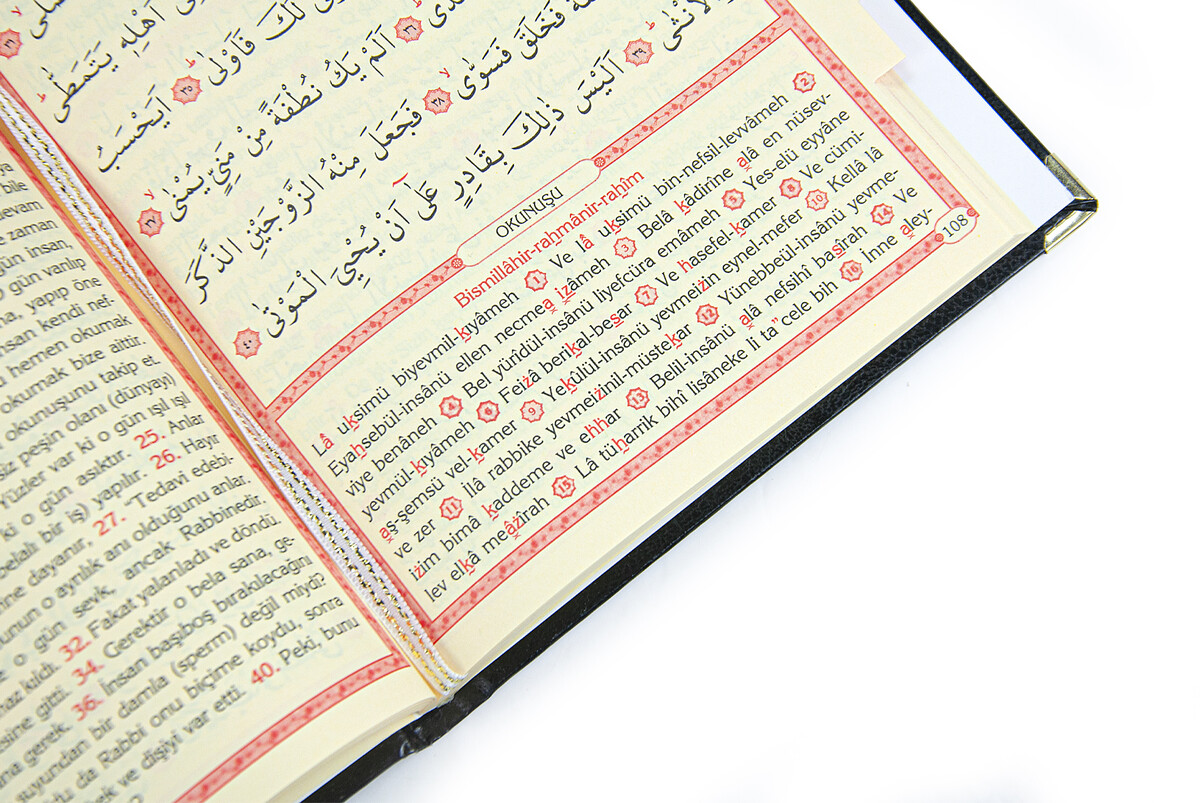 اَهْلِه۪ يَتَمَطّٰىۜ ﴿٣٣﴾
لَكَ فَاَوْلٰىۙ ﴿٣٥﴾ اَيَحْسَبُ
﴿٣٦﴾ اَلَمْ يَكُ نُطْفَةً مِنْ مَنِيٍّ يُمْنٰىۙ ﴿٣٧﴾
فَخَلَقَ فَسَوّٰىۙ ﴿٣٨﴾ فَجَعَلَ مِنْهُ الزَّوْجَيْنِ الذَّكَرَ
وَالْاُنْثٰىۜ ﴿٣٩﴾ اَلَيْسَ ذٰلِكَ بِقَادِرٍ عَلٰٓى اَنْ يُحْيِيَ الْمَوْتٰى ﴿٤٠﴾
OKUNUŞU
Bismillâhir-rahmânir-rahîm
Lâ uksimü biyevmil-kıyâmeh 1 Ve lâ uksimü bin-nefsil-levvâmeh 2
Eyahsebül-insânü ellen necmea izâmeh 3 Belâ kâdirîne alâ en nüsev-
viye benâneh 4 Bel yürîdül-insânü liyefcüra emâmeh 5 Yes-elü eyyâne
yevmül-kıyâmeh 6 Feizâ berikal-besar 7 Ve hasefel-kamer 8 Ve cümi-
aş-şemsü vel-kamer 9 Yekûlül-insânü yevmeizin eynel-mefer 10 Kellâ lâ
ve zer 11 İlâ rabbike yevmeizinil-müstekar 12 Yünebbeül-insânü yevme-
izim bimâ kaddeme ve ehhar 13 Belil-insânü alâ nefsihî basîrah 14 Ve
lev elkâ meâzîrah 15 Lâ tüharrik bihî lisâneke li ta"cele bih 16 İnne aley-
108
ya
bile
devam
zaman
gün insan,
o gün varılıp
yapıp öne
insan kendi nef-
hemen okumak
okumak bize aittir.
okunuşunu takip et.
siz peşin olanı (dünyayı)
Yüzler var ki o gün ışıl ışıl
ki o gün asıktır. 25. Anlar
belalı bir iş) yapılır. 26. Hayır
dayanır, 27. "Tedavi edebi-
o ayrılık anı olduğunu anlar.
o gün sevk, ancak Rabbinedir.
32. Fakat yalanladı ve döndü.
gitti. 34. Gerektir o bela sana, ge-
gerek. 36. İnsan başıboş bırakılacağını
suyundan bir damla (sperm) değil miydi?
da Rabbi onu biçime koydu, sonra
ve dişiyi var etti. 40. Peki, bunu